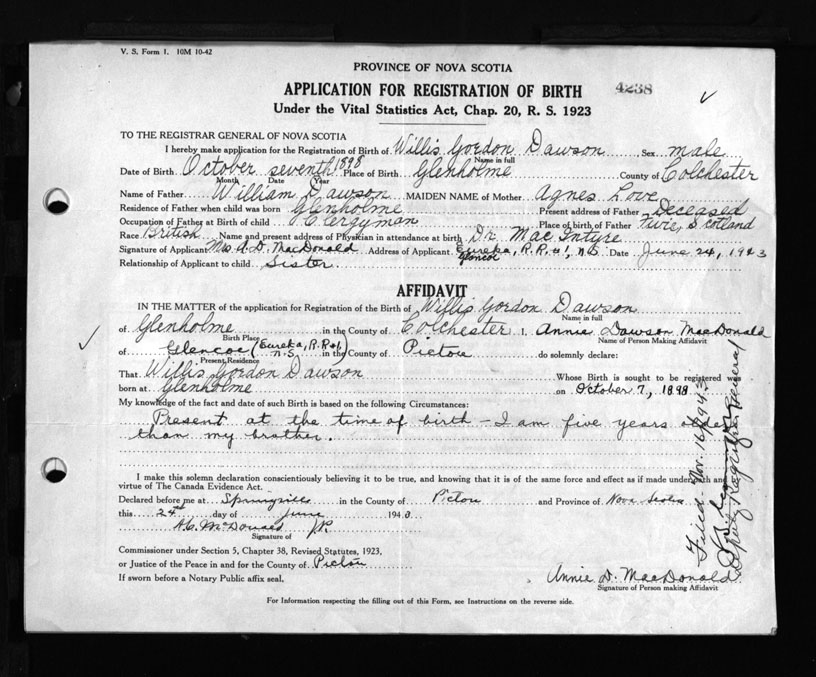 V. S. Form 1. 10M 10-42
PROVINCE OF NOVA SCOTIA
APPLICATION FOR REGISTRATION OF BIRTH 4238
Under the Vital Statistics Act, Chap. 20, R. S. 1923
TO THE REGISTRAR GENERAL OF NOVA SCOTIA
I hereby make application for the Registration of Birth of Willis Gordon Dawson Sex male
Name in full
Date of Birth October seventh 1898 Place of Birth Glenholme County of Colchester
Month Date Year
Name of Father William Dawson MAIDEN NAME of Mother Agnes Love
Residence of Father when child was born Glenholme Present address of Father Deceased
Occupation of Father at Birth of child Clergyman Place of birth of Father Scotland
Race British Name and present address of Physician in attendance at birth Dr. MacIntyre
Signature of Applicant Mrs. A. D. MacDonald Address of Applicant Eureka, R.R.#1, N.S. Date June 24, 1943
Glencoe
Relationship of Applicant to child Sister
AFFIDAVIT
IN THE MATTER of the application for Registration of the Birth of Willis Gordon Dawson
Name in full
of Glenholme in the County of Colchester I, Annie Dawson MacDonald
Birth Place Name of Person Making Affidavit
of Glencoe (Eureka, R.R.#1, N.S.) in the County of Pictou do solemnly declare:
Present Residence
That Willis Gordon Dawson Whose Birth is sought to be registered was
born at Glenholme on October 7, 1898
My knowledge of the fact and date of such Birth is based on the following Circumstances:
Present at the time of birth - I am five years older
than my brother.
I make this solemn declaration conscientiously believing it to be true, and knowing that it is of the same force and effect as if made under oath and
virtue of The Canada Evidence Act.
Declared before me at Springville in the County of Pictou and Province of Nova Scotia
this 24th day of June 1943
McDonald J.P.
Signature of
Commissioner under Section 5, Chapter 38, Revised Statutes, 1923,
or Justice of the Peace in and for the County of Pictou
If sworn before a Notary Public affix seal.
Annie D. MacDonald
Signature of Person making Affidavit
For Information respecting the filling out of this Form, see Instructions on the reverse side.
Filed Nov. 16/194
Deputy Registrar General